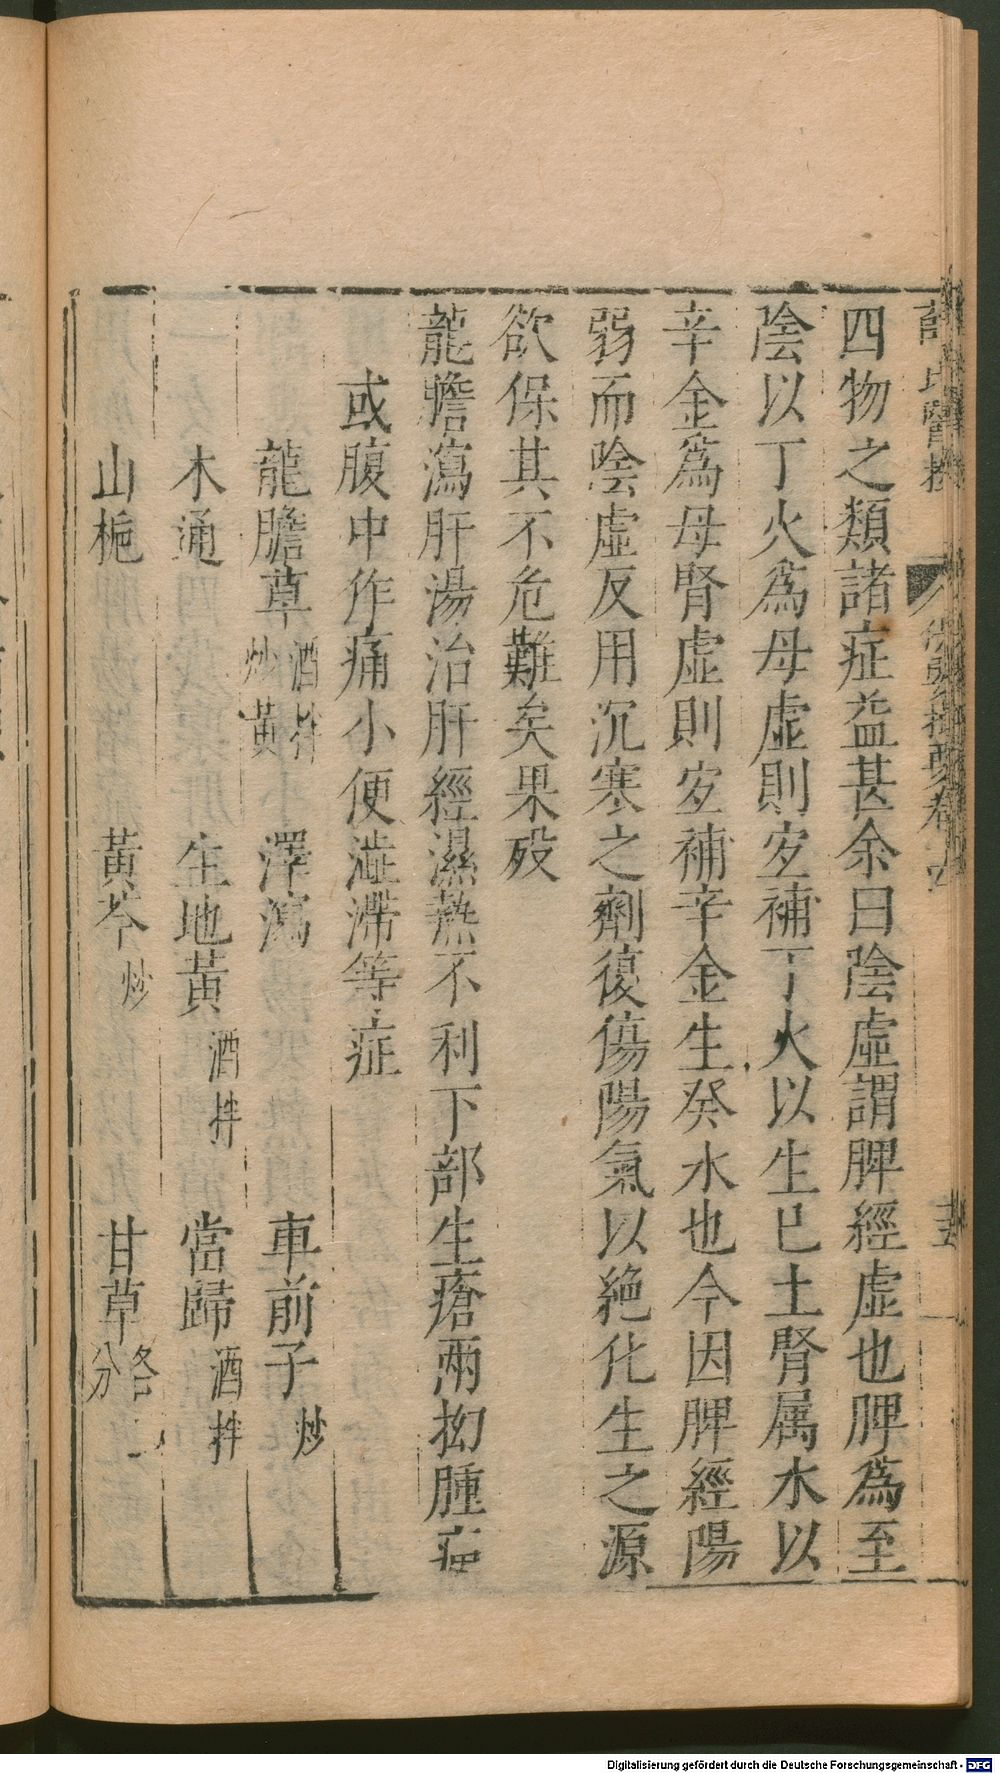 薛氏醫按
四物之類諸症益甚余曰陰虛謂脾經虛也脾為至
陰以丁火為母虛則宐補丁火以生己土腎属水以
辛金為母腎虛則宐補辛金生癸水也今因脾經陽
弱而陰虛反用沉寒之劑復傷陽氣以絶化生之源
欲保其不危難矣果歿
龍膽瀉肝湯治肝經濕熱不利下部生瘡兩拗腫痛
或腹中作痛小便澁滯等症
龍膽草 酒拌炒黃 澤瀉 車前子 炒
木通 生地黃 酒拌 當歸 酒拌
山梔 黃芩 炒 甘草 各一分
Digitalisierung gefördert durch die Deutsche Forschungsgemeinschaft - DFG